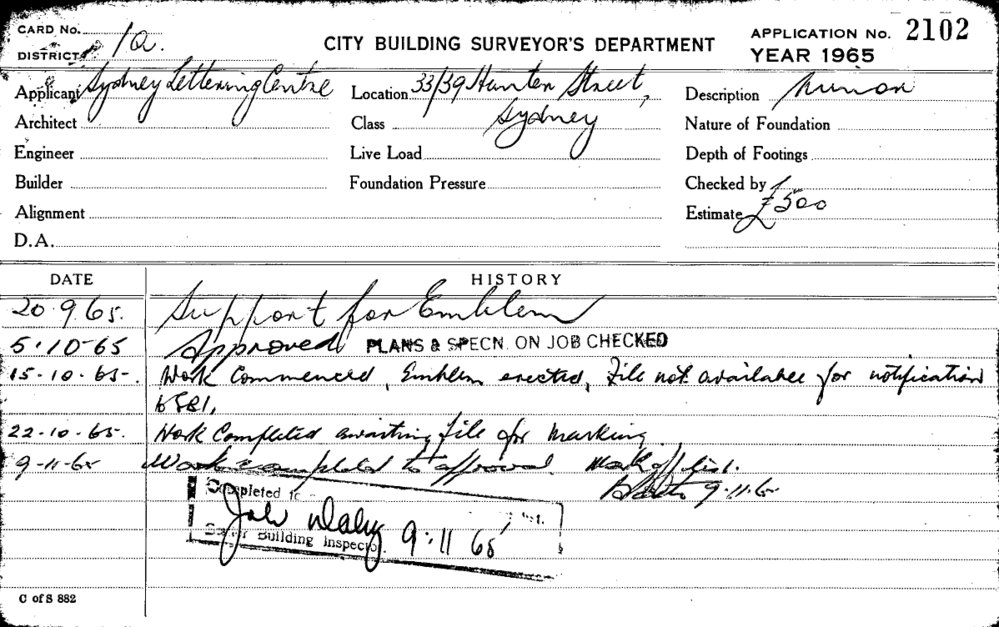 CARD No.
DISTRICT 1a.
CITY BUILDING SURVEYOR'S DEPARTMENT
APPLICATION No. 2102
YEAR 1965
Applicant Sydney Lettering Centre
Location 33/39 Hunter Street,
Sydney
Description Minor
Architect
Class
Nature of Foundation
Engineer
Live Load
Depth of Footings
Builder
Foundation Pressure
Checked by
Alignment
Estimate £500
D.A.
DATE HISTORY
20.9.65. Support for Emblem
5.10-65 Approved PLANS & SPECN. ON JOB CHECKED
15-10-65- Work Commenced, Emblem erected, File not available for notification
22-10-65. Work Completed awaiting file for marking.
9-11-65 Work completed to approval. Mark off list.
9.11.65
Completed to
Building Inspector.
9.11 65
C of S 882